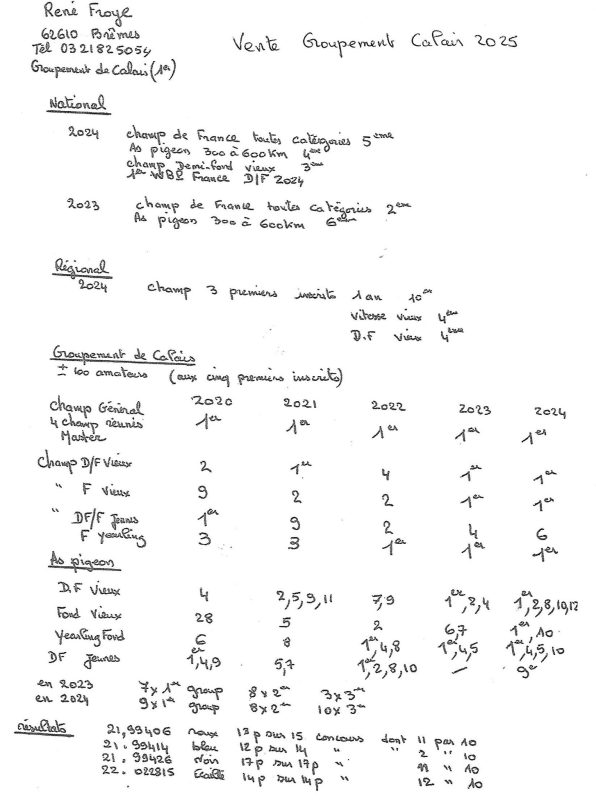 René Froye
62610 Brêmes
Tél 0321825054
Groupement de Calais (1er)
Vente Groupement Calais 2025
National
2024 champ de France toutes catégories 5ème
As pigeon 300 à 600km 4ème
champ Demi-fond vieux 3ème
1er WBL France D/F 2024
2023 champ de France toutes catégories 2ème
As pigeon 300 à 600km 6ème
Régional
2024 champ 3 premiers inscrits 1an 10ème
vitesse vieux 4ème
D.F vieux 4ème
Groupement de Calais
± 100 amateurs (aux cinq premiers inscrits)
Champ Général 2020 2021 2022 2023 2024
4 champ réunis 1er 1er 1er 1er 1er
Master
Champ D/F Vieux 2 1er 4 1er 1er
" F vieux 9 2 2 1er 1er
" DF/F Jeunes 1er 9 2 4 6
F yearling 3 3 1er 1er 1er
As pigeon
D.F Vieux 4 2,5,9,11 7,9 1er,2,4 1er,2,8,10,12
Fond Vieux 28 5 2 6,7 1er,10
Yearling Fond 6 8 1er,4,8 1er,4,5 1er,4,5,10
DF Jeunes 1er,4,9 5,7 1er,2,8,10 — 9e
en 2023 7x1er group 8x2ème 3x3ème
en 2024 9x1er group 8x2ème 10x3ème
résultats 21,99406 roux 13p sur 15 concours dont 11 par 10
21.99414 bleu 12p sur 14 " " 2 " 10
21.99426 Noir 17p sur 17p " 11 " 10
22.022815 Ecaillé 14p sur 14p " 12 " 10